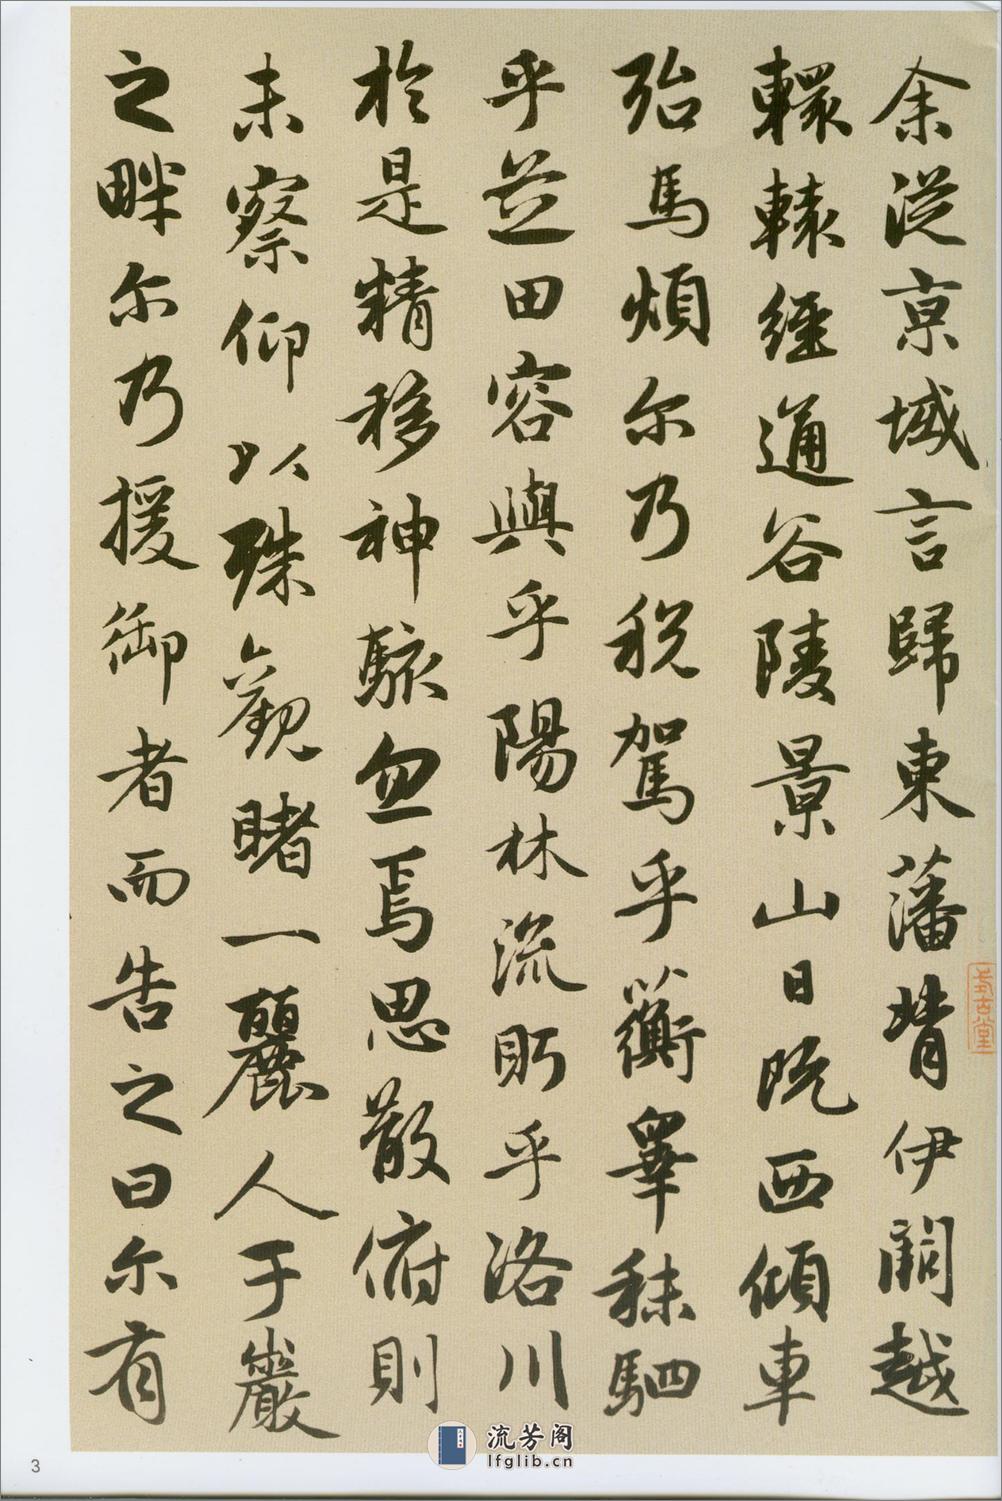 余從京域言歸東藩背伊闕越
轘轅經通谷陵景山日既西傾車
殆馬煩尔乃税駕乎蘅皋秣駟
乎芝田容與乎陽林流眄乎洛川
於是精移神駭忽焉思散俯則
未察仰以殊觀睹一麗人于巖
之畔尔乃援御者而告之曰尔有
式古堂
3
流芳阁
lfglib.cn